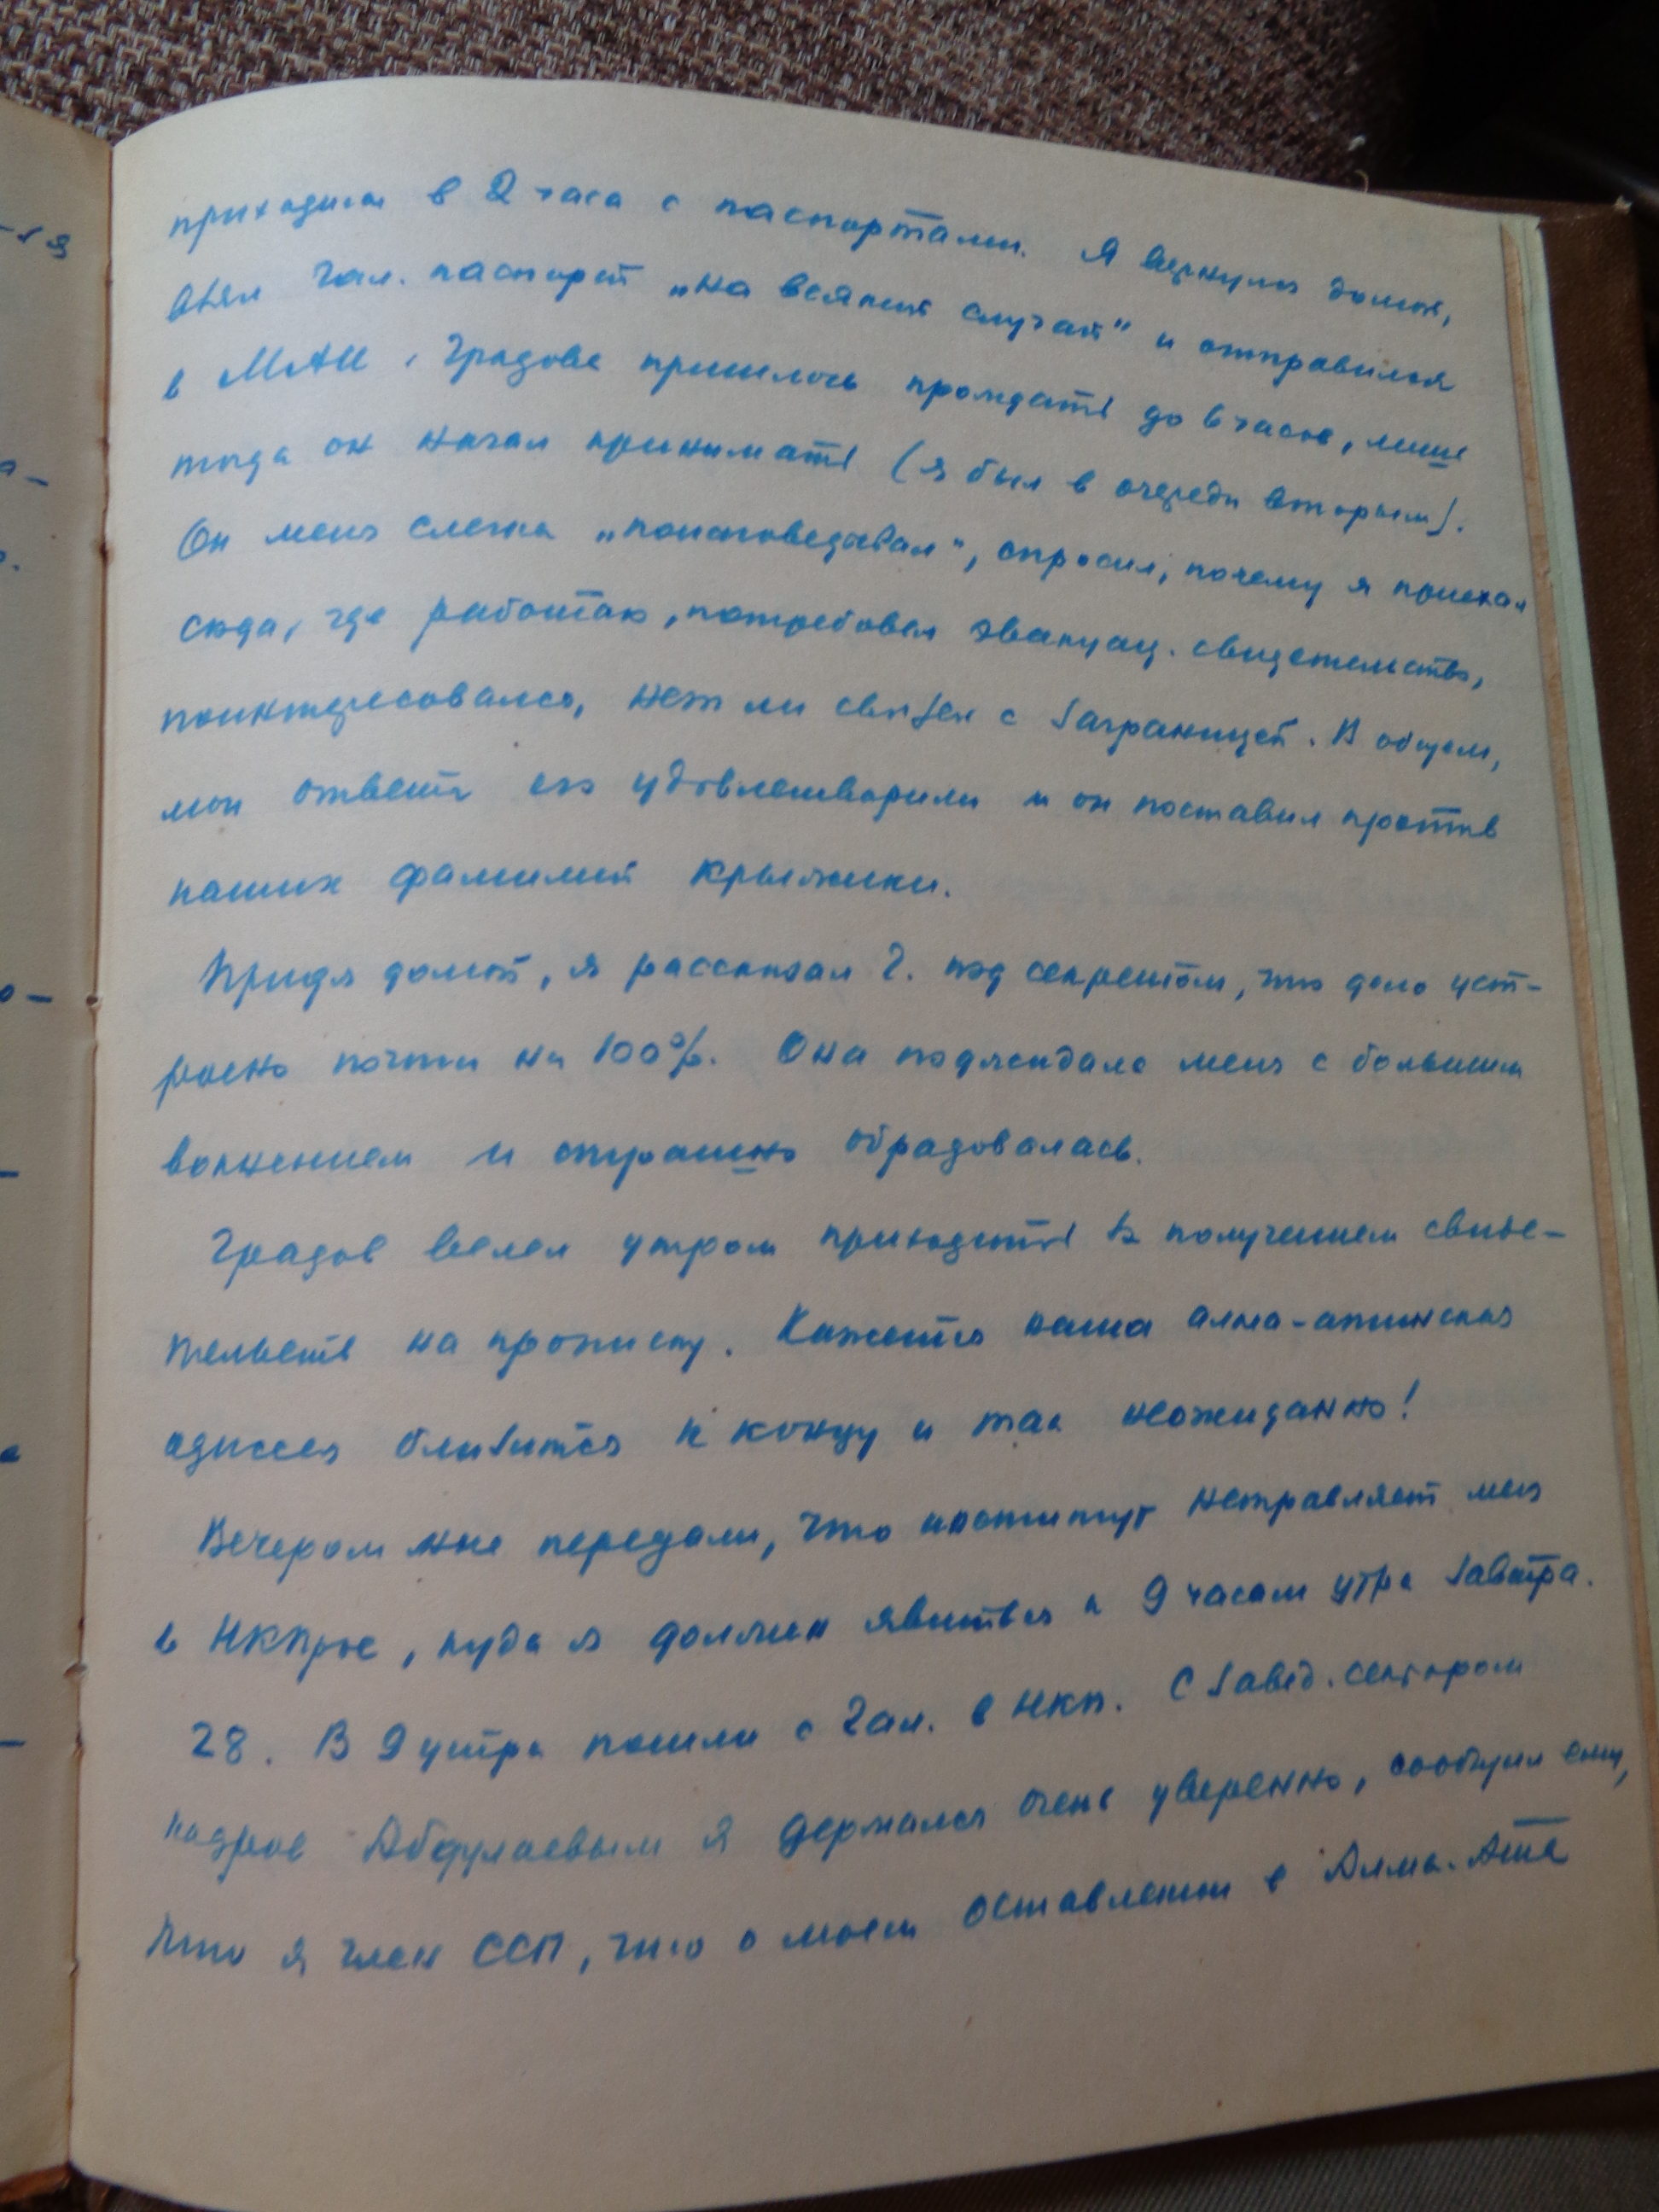 приходить в 2 часа с паспортами. Я вернулся домой,
взял Гал. паспорт „на всякий случай" и отправился
в МАИ. Градова пришлось прождать до 6 часов, лишь
тогда он начал принимать (я был в очереди вторым).
Он меня слегка „поисповедывал", спросил, почему я приехал
сюда, где работаю, потребовал эвакуац. свидетельство,
поинтересовался, нет ли связей с заграницей. В общем,
мои ответы его удовлетворили и он поставил против
наших фамилий крыжики.
Придя домой, я рассказал Г. под секретом, что дело уст-
роено почти на 100%. Она поджидала меня с большим
волнением и страшно обрадовалась.
Градов велел утром приходить за получением свиде-
тельств на прописку. Кажется наша алма-атинская
одиссея близится к концу и так неожиданно!
Вечером мне передали, что институт направляет меня
в НКПрос, куда я должен явиться к 9 часам утра завтра.
28. В 9 утра пошли с Гал. в НКП. С завед. сектором
кадров Абдулаевым я держался очень уверенно, сообщил ему,
что я член ССП, что о моем оставлении в Алма-Ата